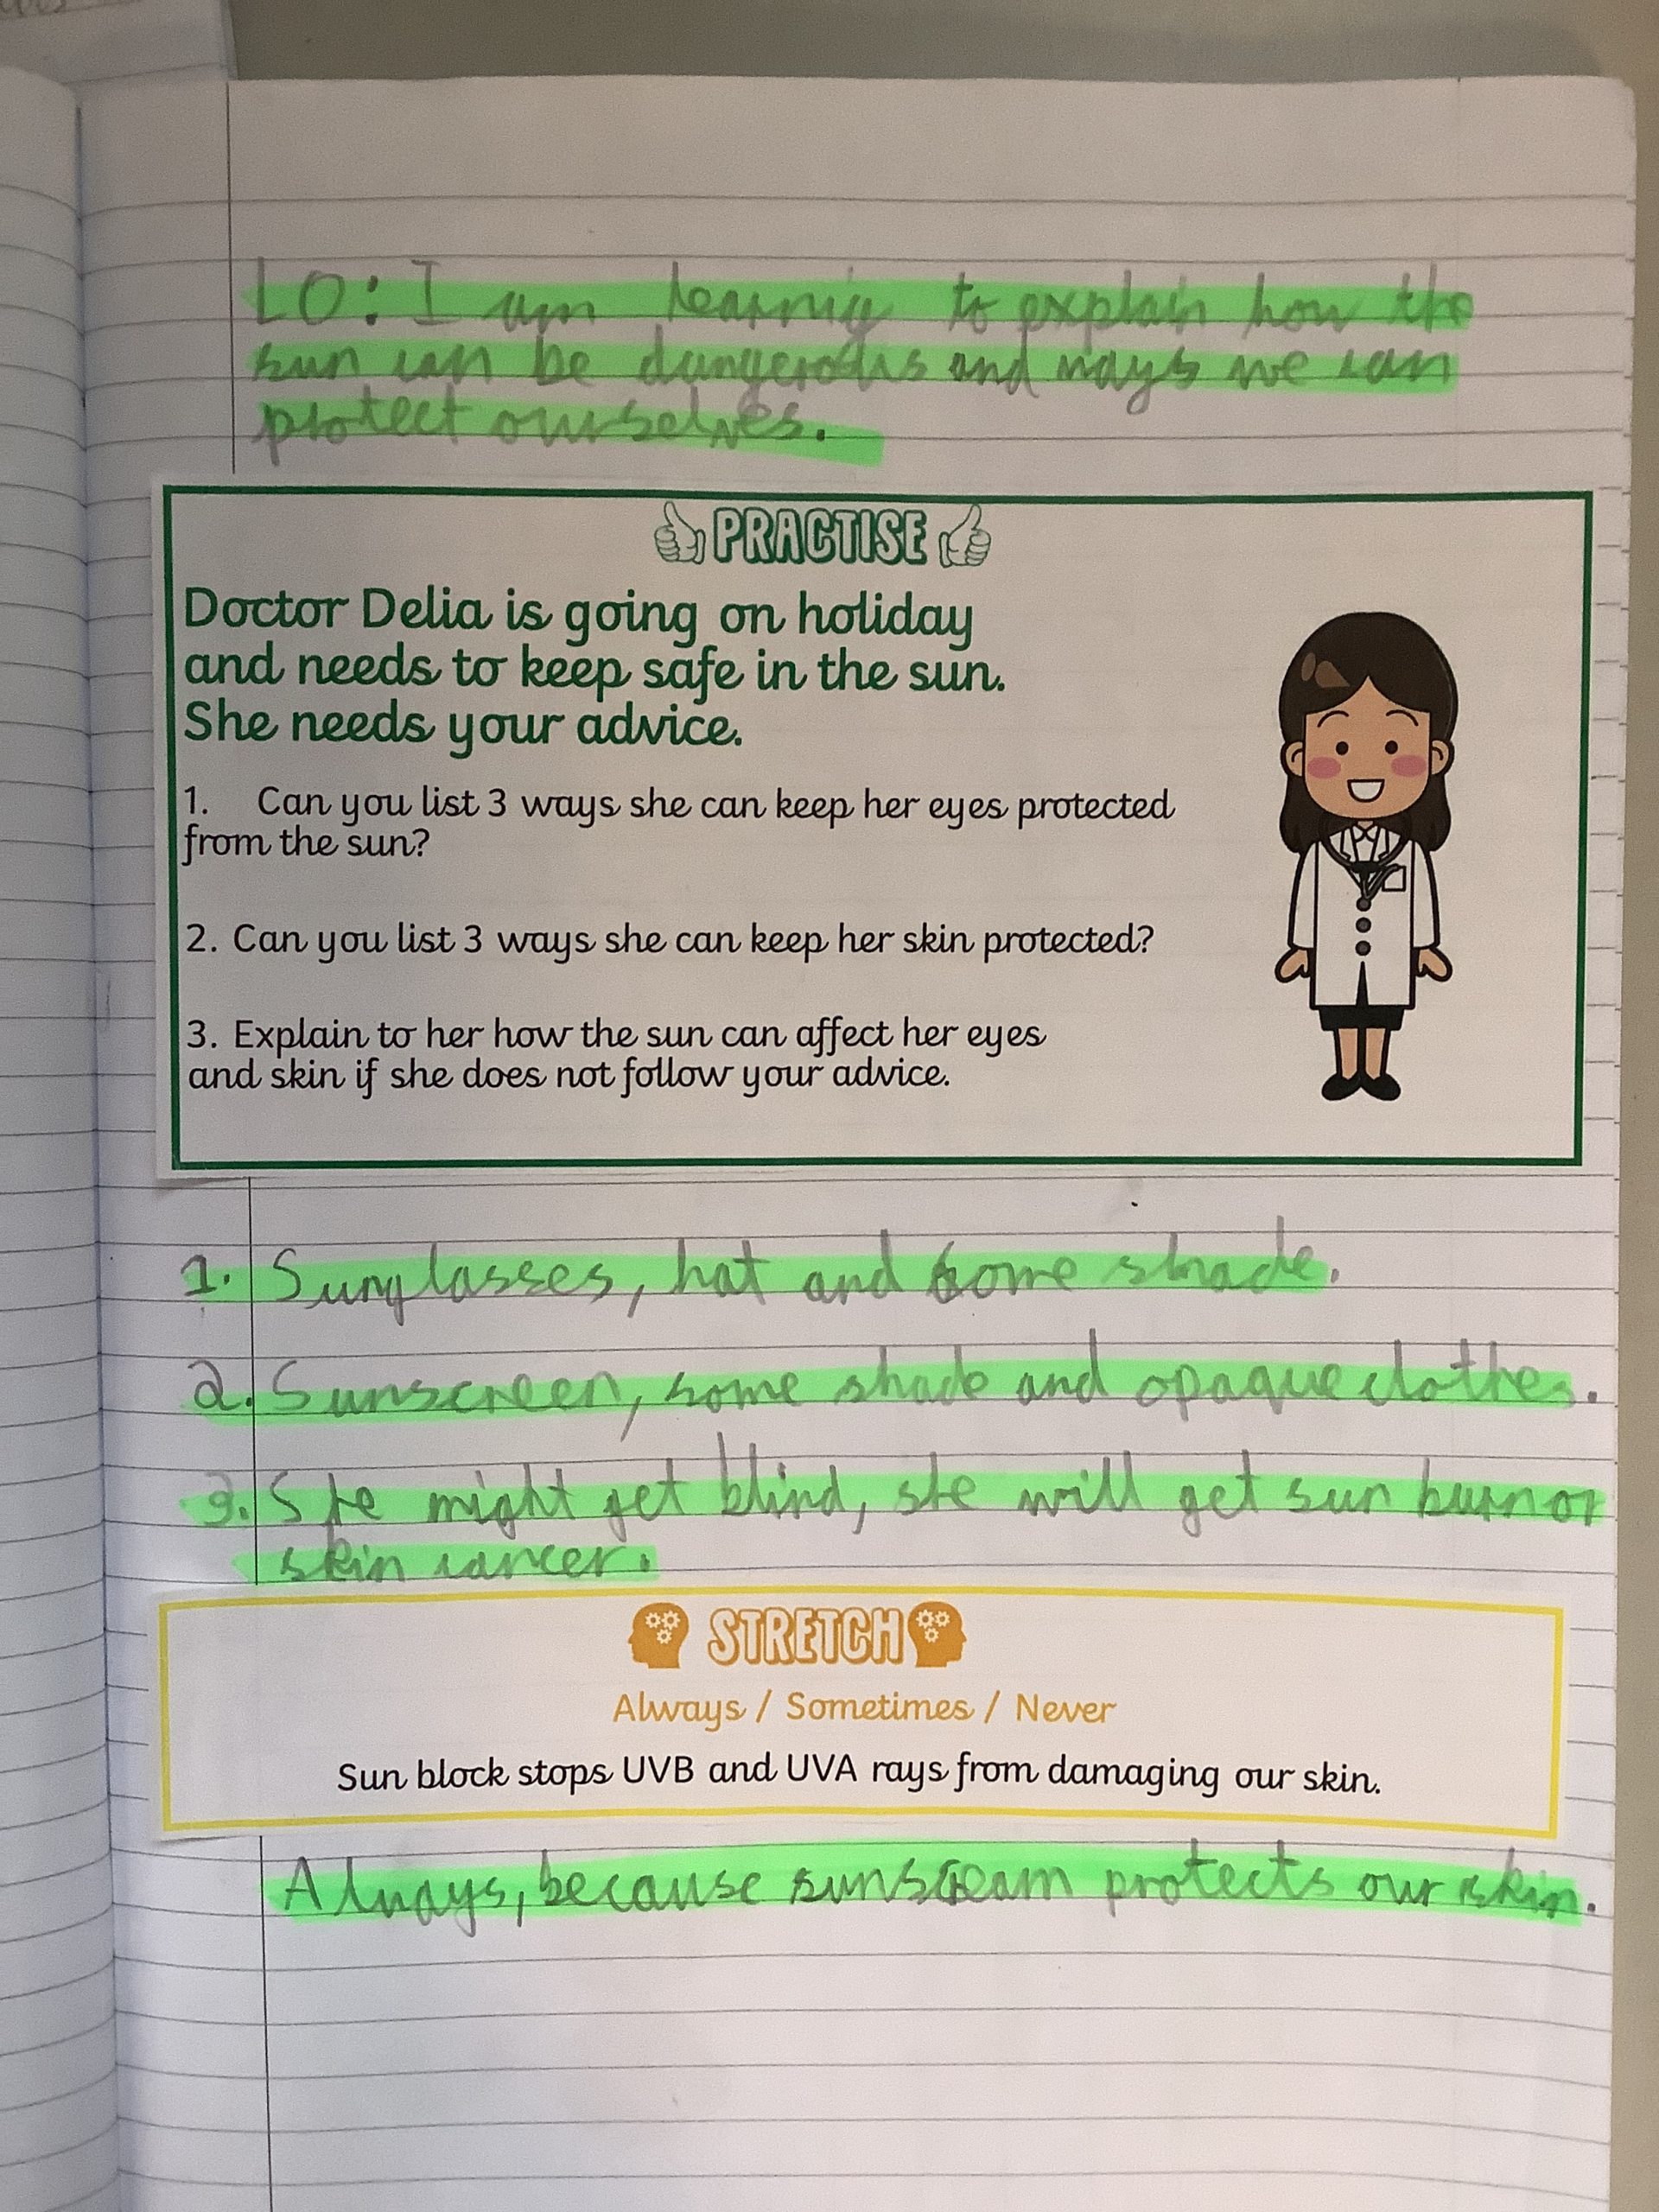 LO: I am learnig to explain how the
sun can be dangerous and ways we can
protect ourselves.
PRACTISE
Doctor Delia is going on holiday
and needs to keep safe in the sun.
She needs your advice.
1. Can you list 3 ways she can keep her eyes protected
from the sun?
2. Can you list 3 ways she can keep her skin protected?
3. Explain to her how the sun can affect her eyes
and skin if she does not follow your advice.
1. Sunglasses, hat and some shade.
2. Sunscreen, some shade and opaque clothes.
3. She might get blind, she will get sun burn or
skin cancer.
STRETCH
Always / Sometimes / Never
Sun block stops UVB and UVA rays from damaging our skin.
Always, because sunscream protects our skin.